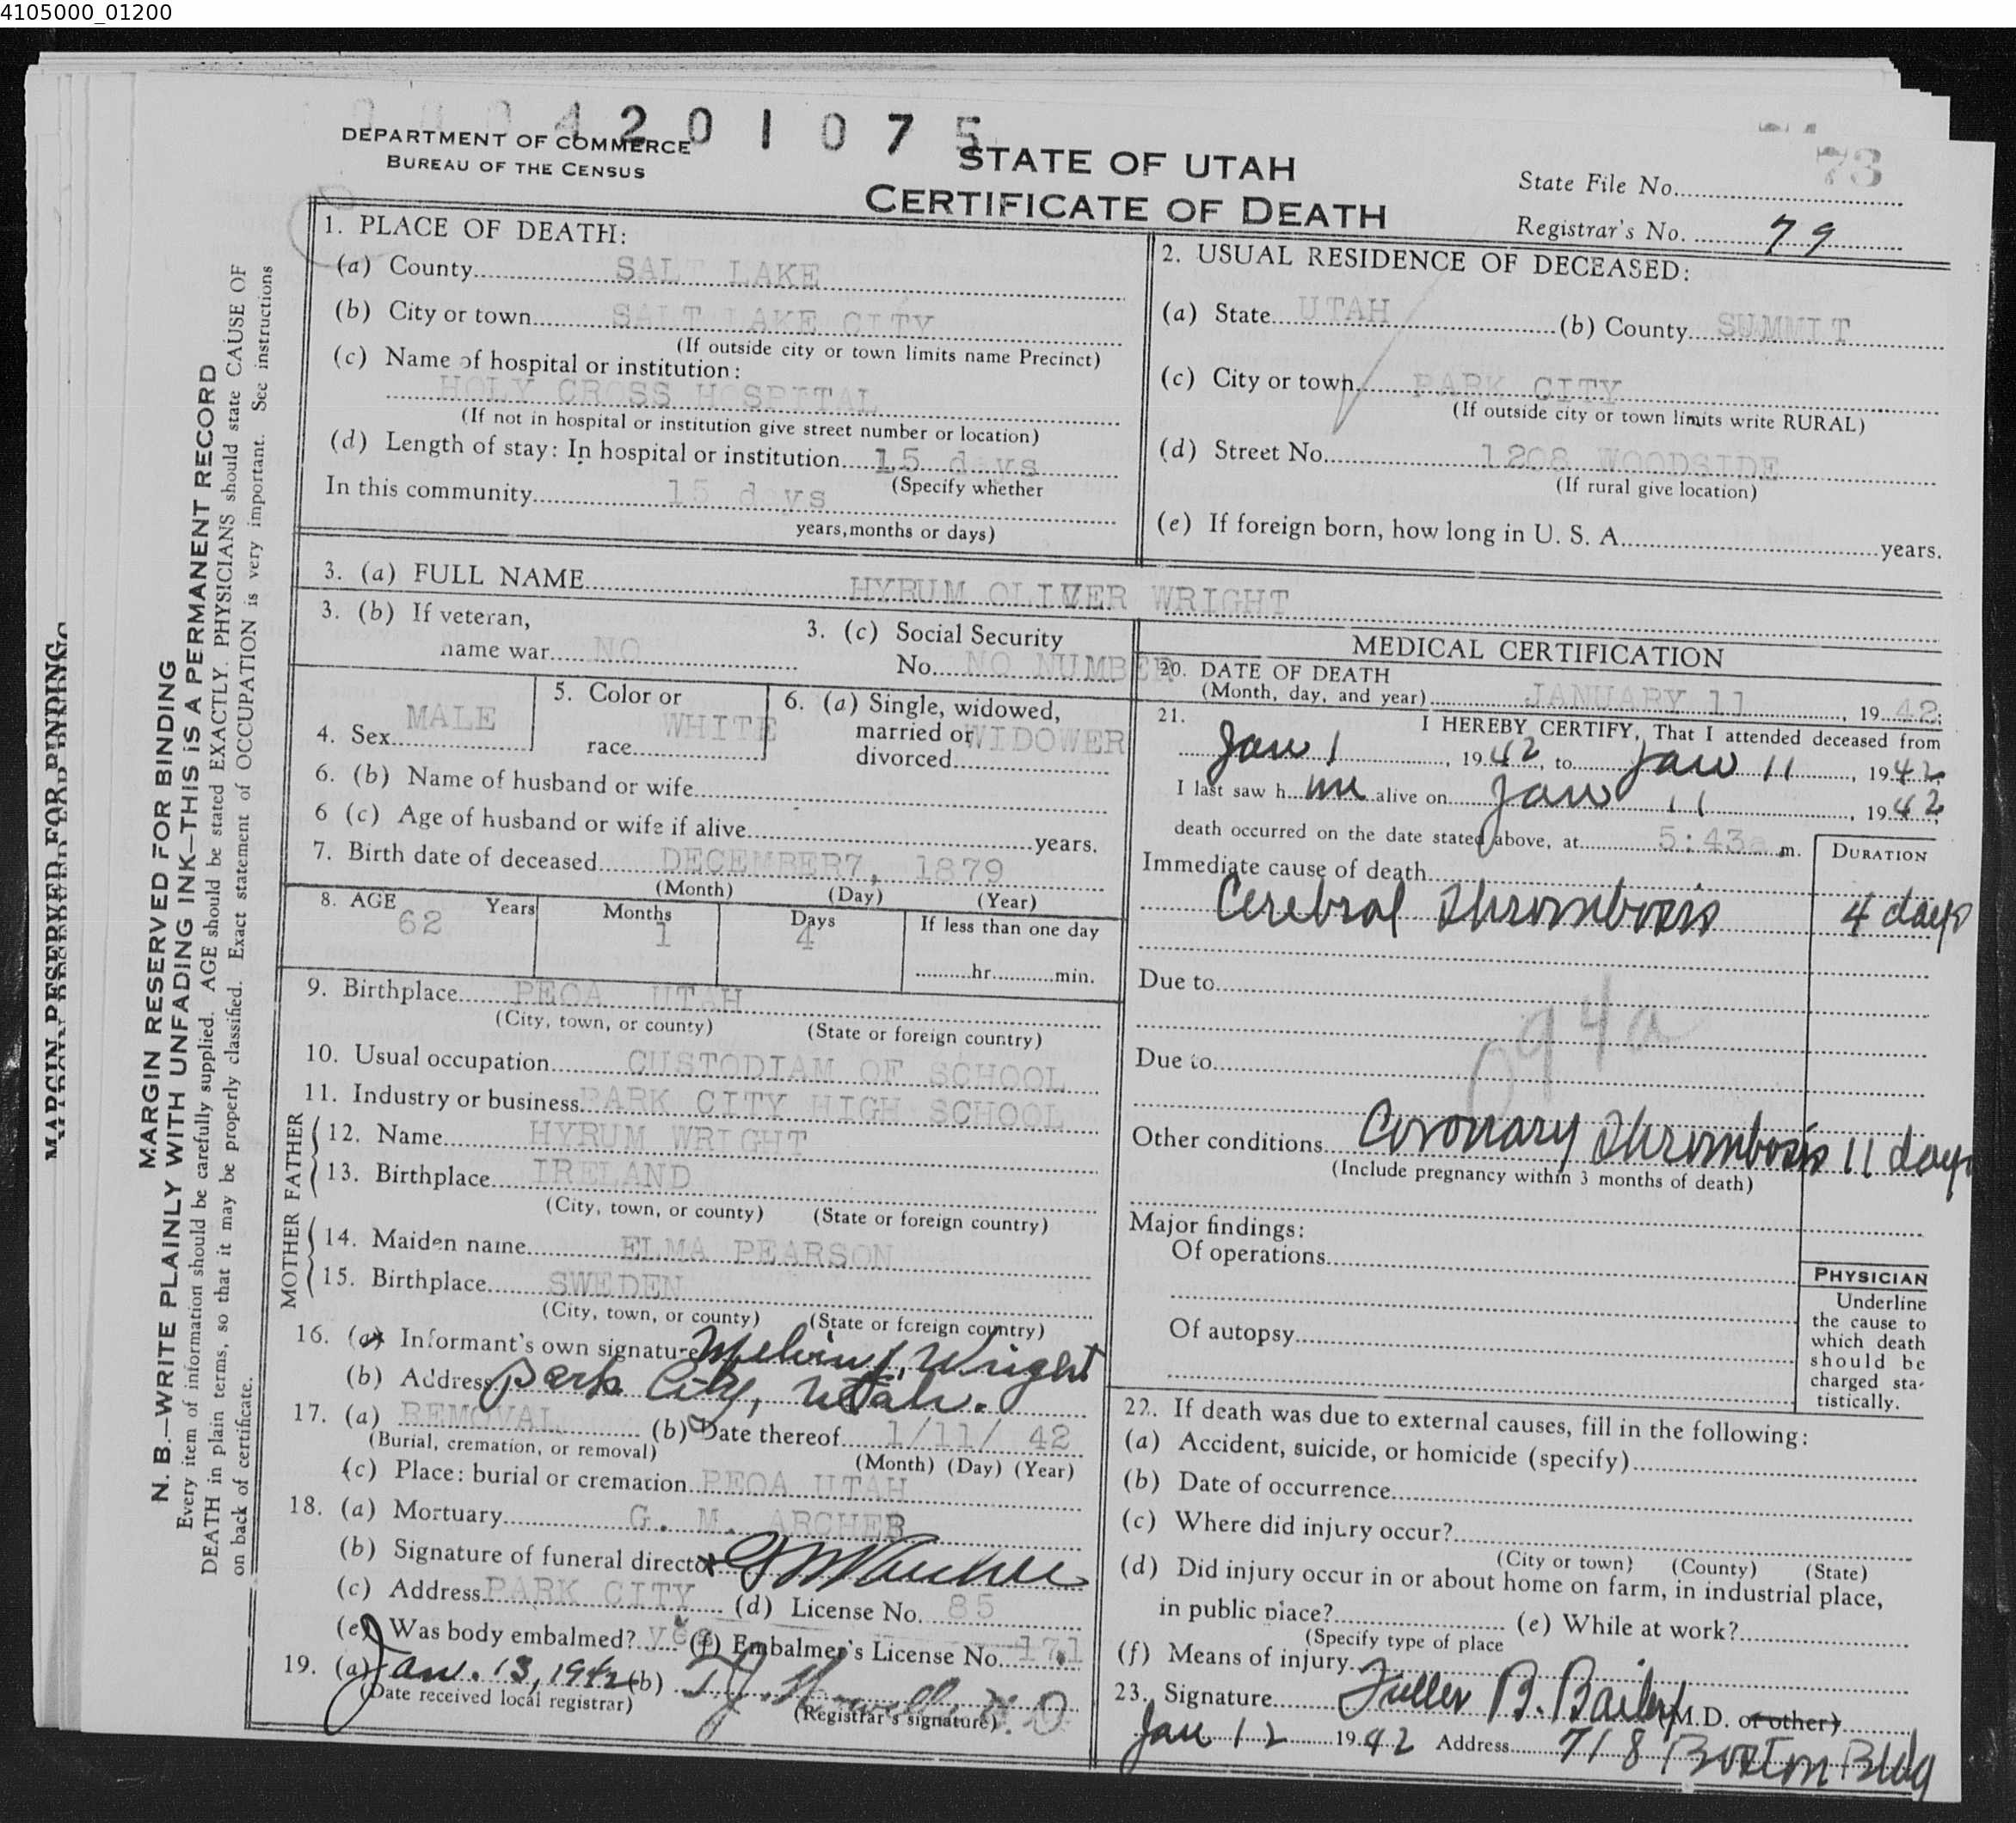 4105000_01200
4 2 0 1 0 7 5
DEPARTMENT OF COMMERCE
BUREAU OF THE CENSUS
STATE OF UTAH
CERTIFICATE OF DEATH
State File No. 73
Registrar's No. 79
1. PLACE OF DEATH:
(a) County SALT LAKE
(b) City or town SALT LAKE CITY
(If outside city or town limits name Precinct)
(c) Name of hospital or institution:
HOLY CROSS HOSPITAL
(If not in hospital or institution give street number or location)
(d) Length of stay: In hospital or institution 15 days
(Specify whether
In this community 15 days
years, months or days)
2. USUAL RESIDENCE OF DECEASED:
(a) State UTAH (b) County SUMMIT
(c) City or town PARK CITY
(If outside city or town limits write RURAL)
(d) Street No. 1208 WOODSIDE
(If rural give location)
(e) If foreign born, how long in U. S. A. years.
3. (a) FULL NAME HYRUM OLIVER WRIGHT
3. (b) If veteran,
name war NO
3. (c) Social Security
No. NO NUMBER
4. Sex MALE
5. Color or
race WHITE
6. (a) Single, widowed,
married or
divorced WIDOWER
6. (b) Name of husband or wife
6 (c) Age of husband or wife if alive years.
7. Birth date of deceased DECEMBER7, 1879
(Month) (Day) (Year)
8. AGE Years Months Days If less than one day
62 1 4
hr. min.
9. Birthplace PEOA UTAH
(City, town, or county) (State or foreign country)
10. Usual occupation CUSTODIAM OF SCHOOL
11. Industry or business PARK CITY HIGH SCHOOL
FATHER
12. Name HYRUM WRIGHT
13. Birthplace IRELAND
(City, town, or county) (State or foreign country)
MOTHER
14. Maiden name ELMA PEARSON
15. Birthplace SWEDEN
(City, town, or county) (State or foreign country)
16. (a) Informant's own signature Melvin J. Wright
(b) Address Park City, Utah.
17. (a) REMOVAL (b) Date thereof 1/11/ 42
(Burial, cremation, or removal) (Month) (Day) (Year)
(c) Place: burial or cremation PEOA UTAH
18. (a) Mortuary G. M. ARCHER
(b) Signature of funeral director G M Archer
(c) Address PARK CITY (d) License No. 85
(e) Was body embalmed? yes (f) Embalmer's License No. 171
19. (a) Jan. 13, 1942 (b) M.D
(Date received local registrar) (Registrar's signature)
MEDICAL CERTIFICATION
20. DATE OF DEATH
(Month, day, and year) JANUARY 11, 1942;
21. I HEREBY CERTIFY, That I attended deceased from
Jan 1, 1942, to Jan 11, 1942
I last saw him alive on Jan 11, 1942
death occurred on the date stated above, at 5:43a m.
DURATION
Immediate cause of death
Cerebral Thrombosis 4 days
Due to
094a
Due to
Other conditions Coronary Thrombosis 11 days
(Include pregnancy within 3 months of death)
Major findings:
Of operations
Of autopsy
PHYSICIAN
Underline
the cause to
which death
should be
charged sta-
tistically.
22. If death was due to external causes, fill in the following:
(a) Accident, suicide, or homicide (specify)
(b) Date of occurrence
(c) Where did injury occur?
(City or town) (County) (State)
(d) Did injury occur in or about home on farm, in industrial place,
in public place? (e) While at work?
(Specify type of place
(f) Means of injury
23. Signature Fuller B. Bailey (M.D. or other)
Jan 12 1942 Address 718 Boston Bldg
MARGIN RESERVED FOR BINDING
MARGIN RESERVED FOR BINDING
N. B.—WRITE PLAINLY WITH UNFADING INK—THIS IS A PERMANENT RECORD
Every item of information should be carefully supplied. AGE should be stated EXACTLY. PHYSICIANS should state CAUSE OF
DEATH in plain terms, so that it may be properly classified. Exact statement of OCCUPATION is very important. See instructions
on back of certificate.